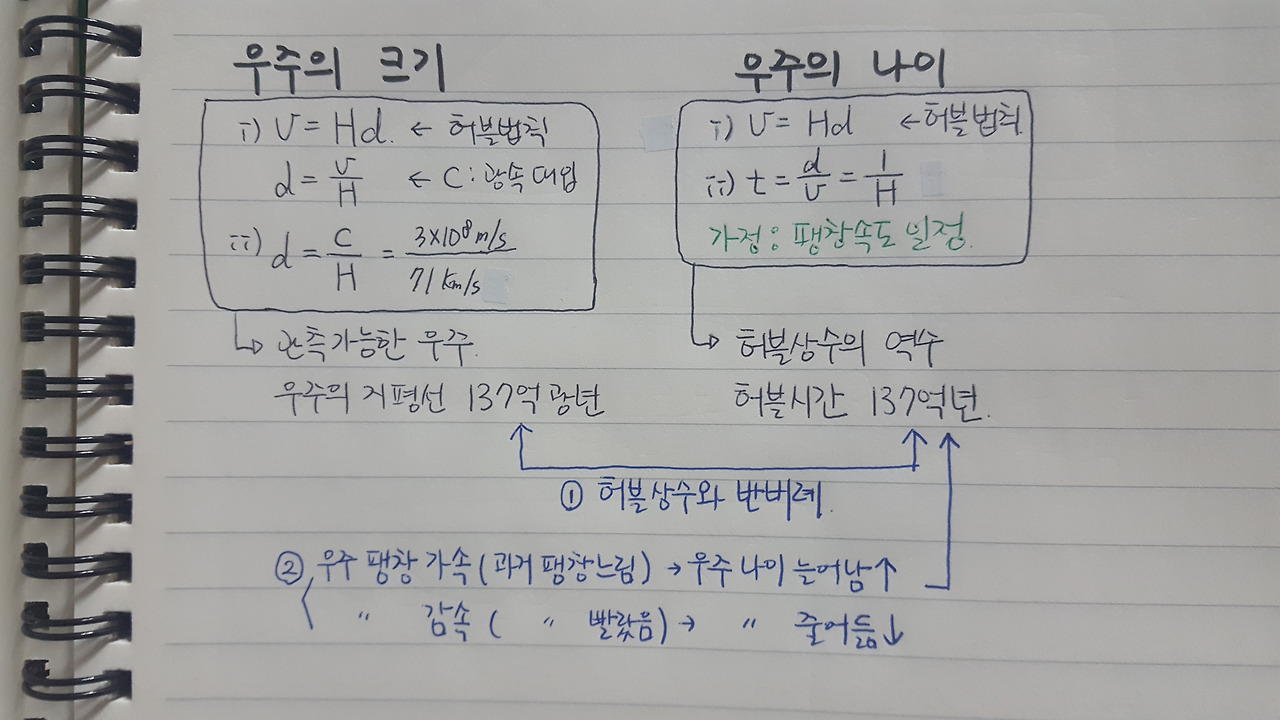 우주의 크기
i) V = Hd. ← 허블법칙
d = V/H ← C : 광속 대입
ii) d = C/H = 3×10⁸m/s / 71km/s
↳ 관측가능한 우주.
우주의 지평선 137억 광년
우주의 나이
i) V = Hd ← 허블법칙.
ii) t = d/V = 1/H
가정 : 팽창속도 일정.
↳ 허블상수의 역수
허블시간 137억년.
① 허블상수와 반비례.
② 우주 팽창 가속 (과거 팽창느림) → 우주 나이 늘어남↑
〃 감속 ( 〃 빨랐음) → 〃 줄어듦↓